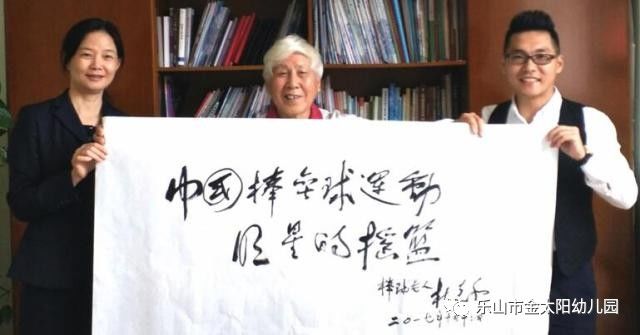 中國棒垒球運動
明星的摇篮
棒球老人 杜克和
二〇一七年
乐山市金太阳幼儿园